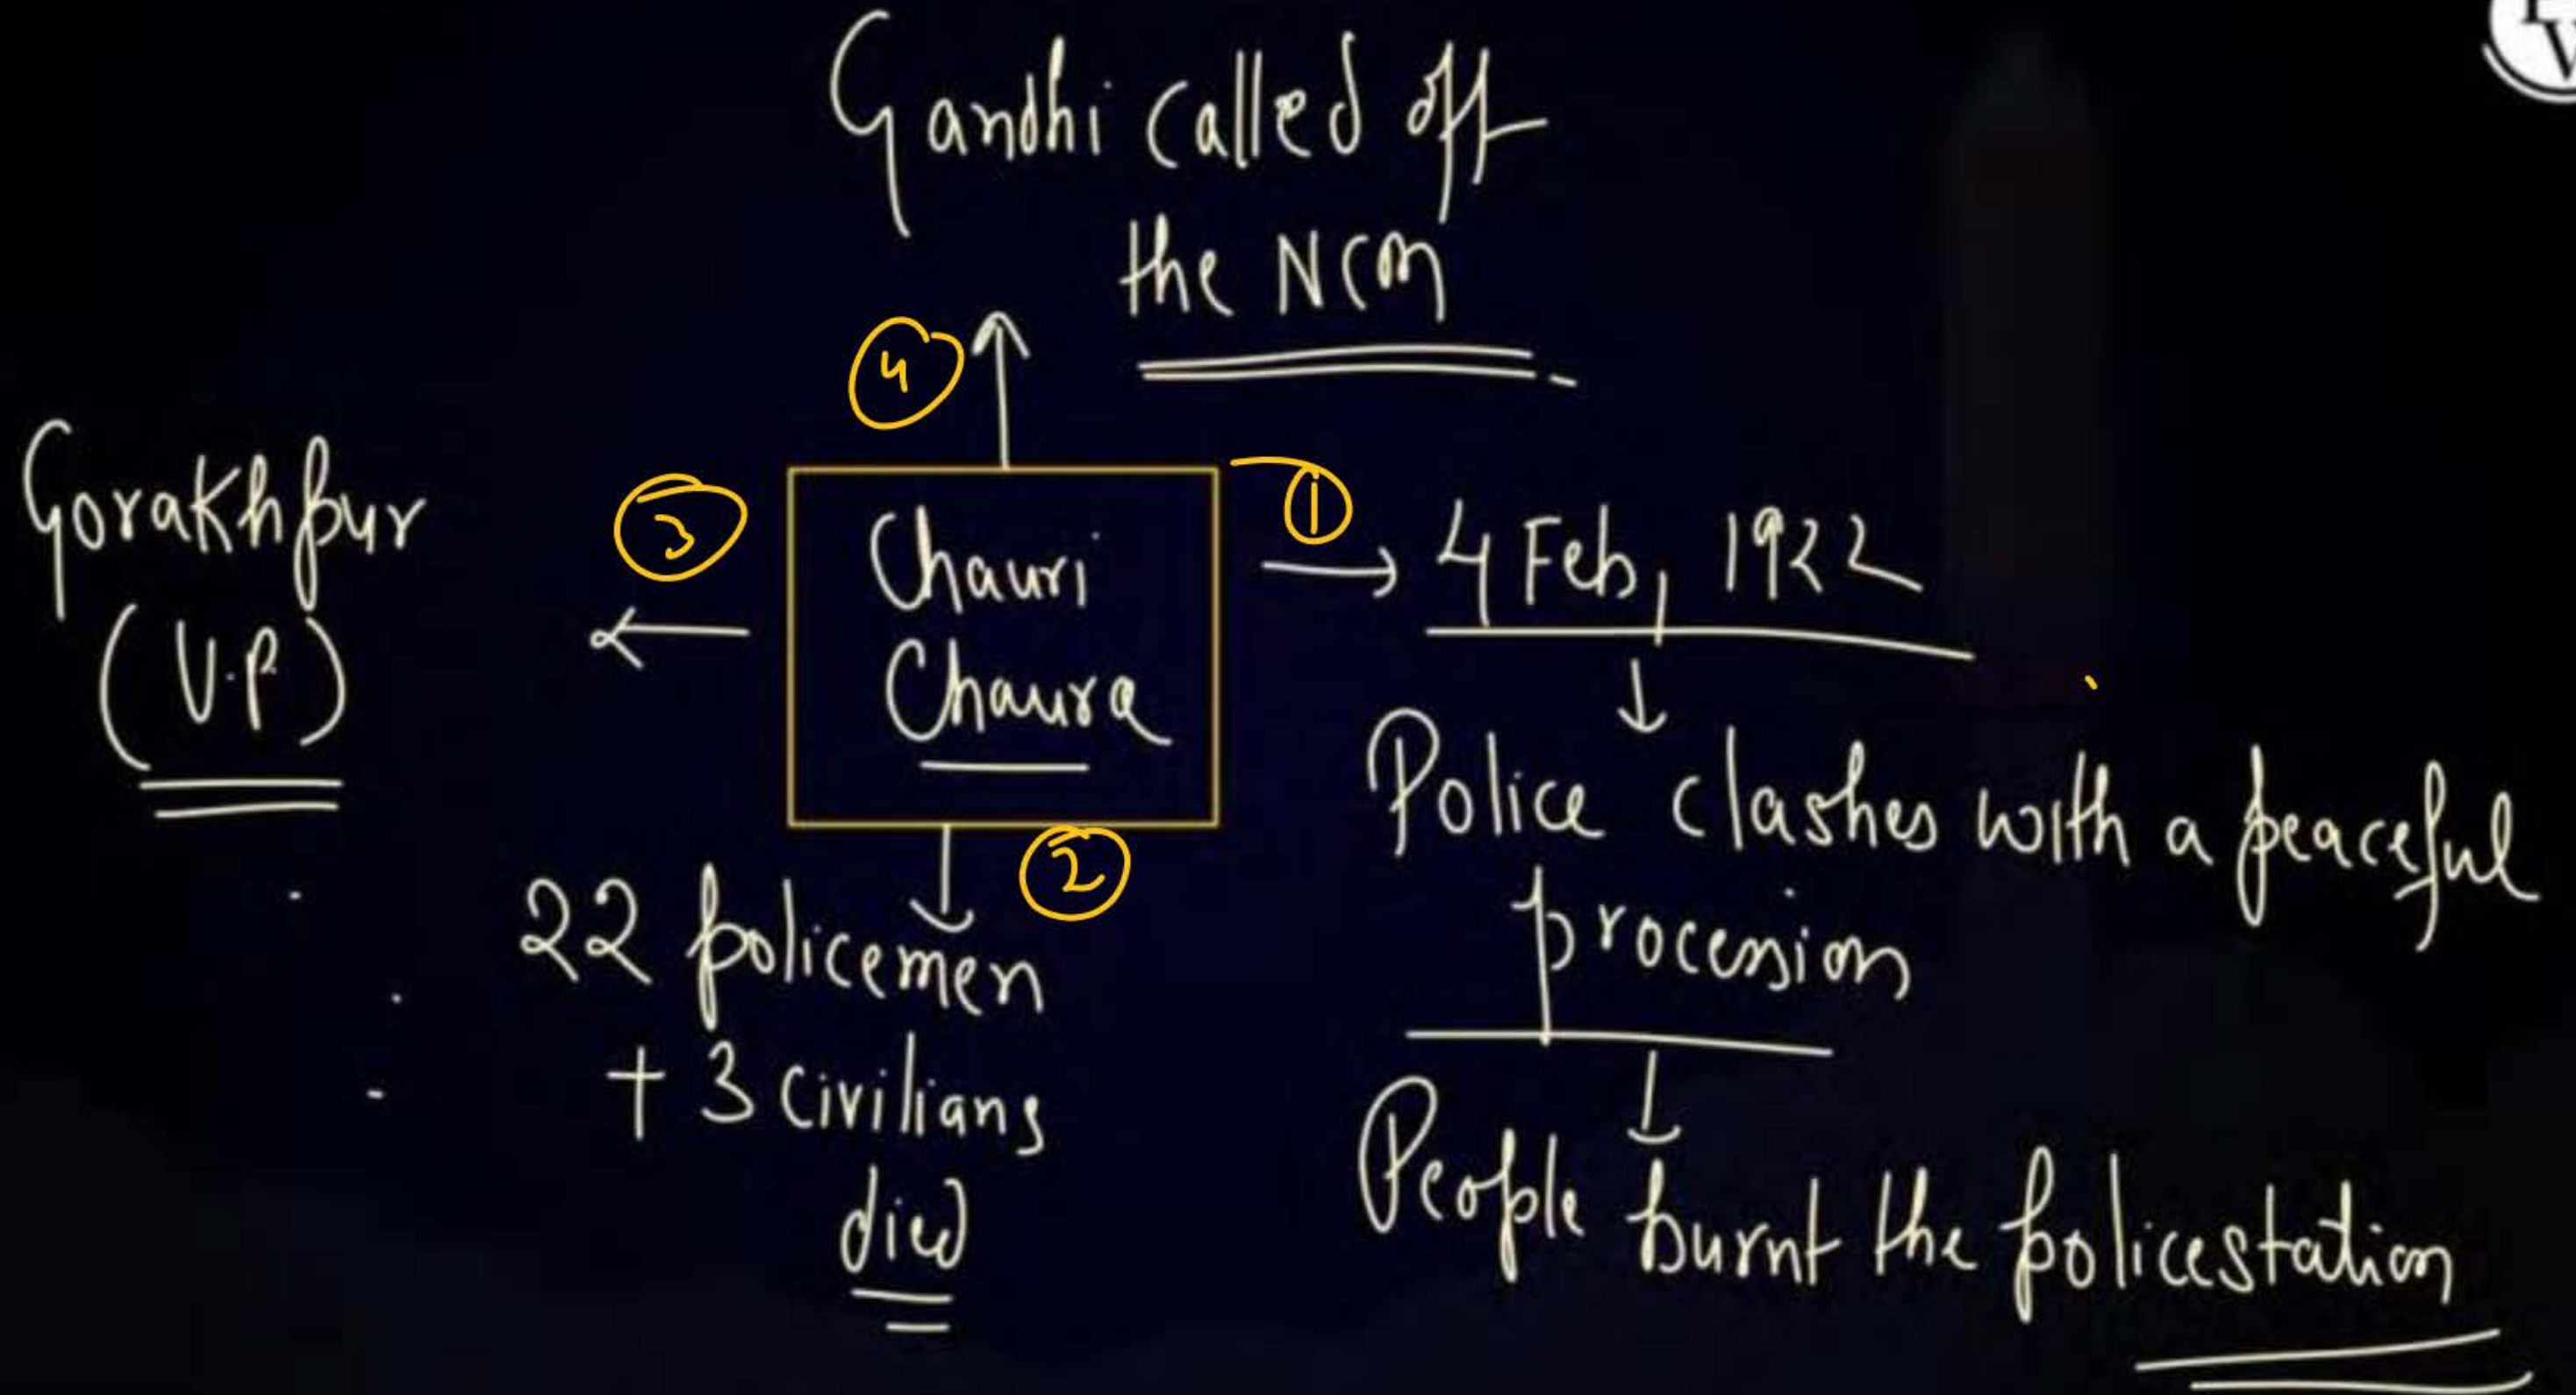 Gandhi called off
the NCM
4
Gorakhpur
(U.P)
3
Chauri
Chaura
1
4 Feb, 1922
Police clashes with a peaceful
procession
People burnt the policestation
2
22 policemen
+ 3 civilians
died